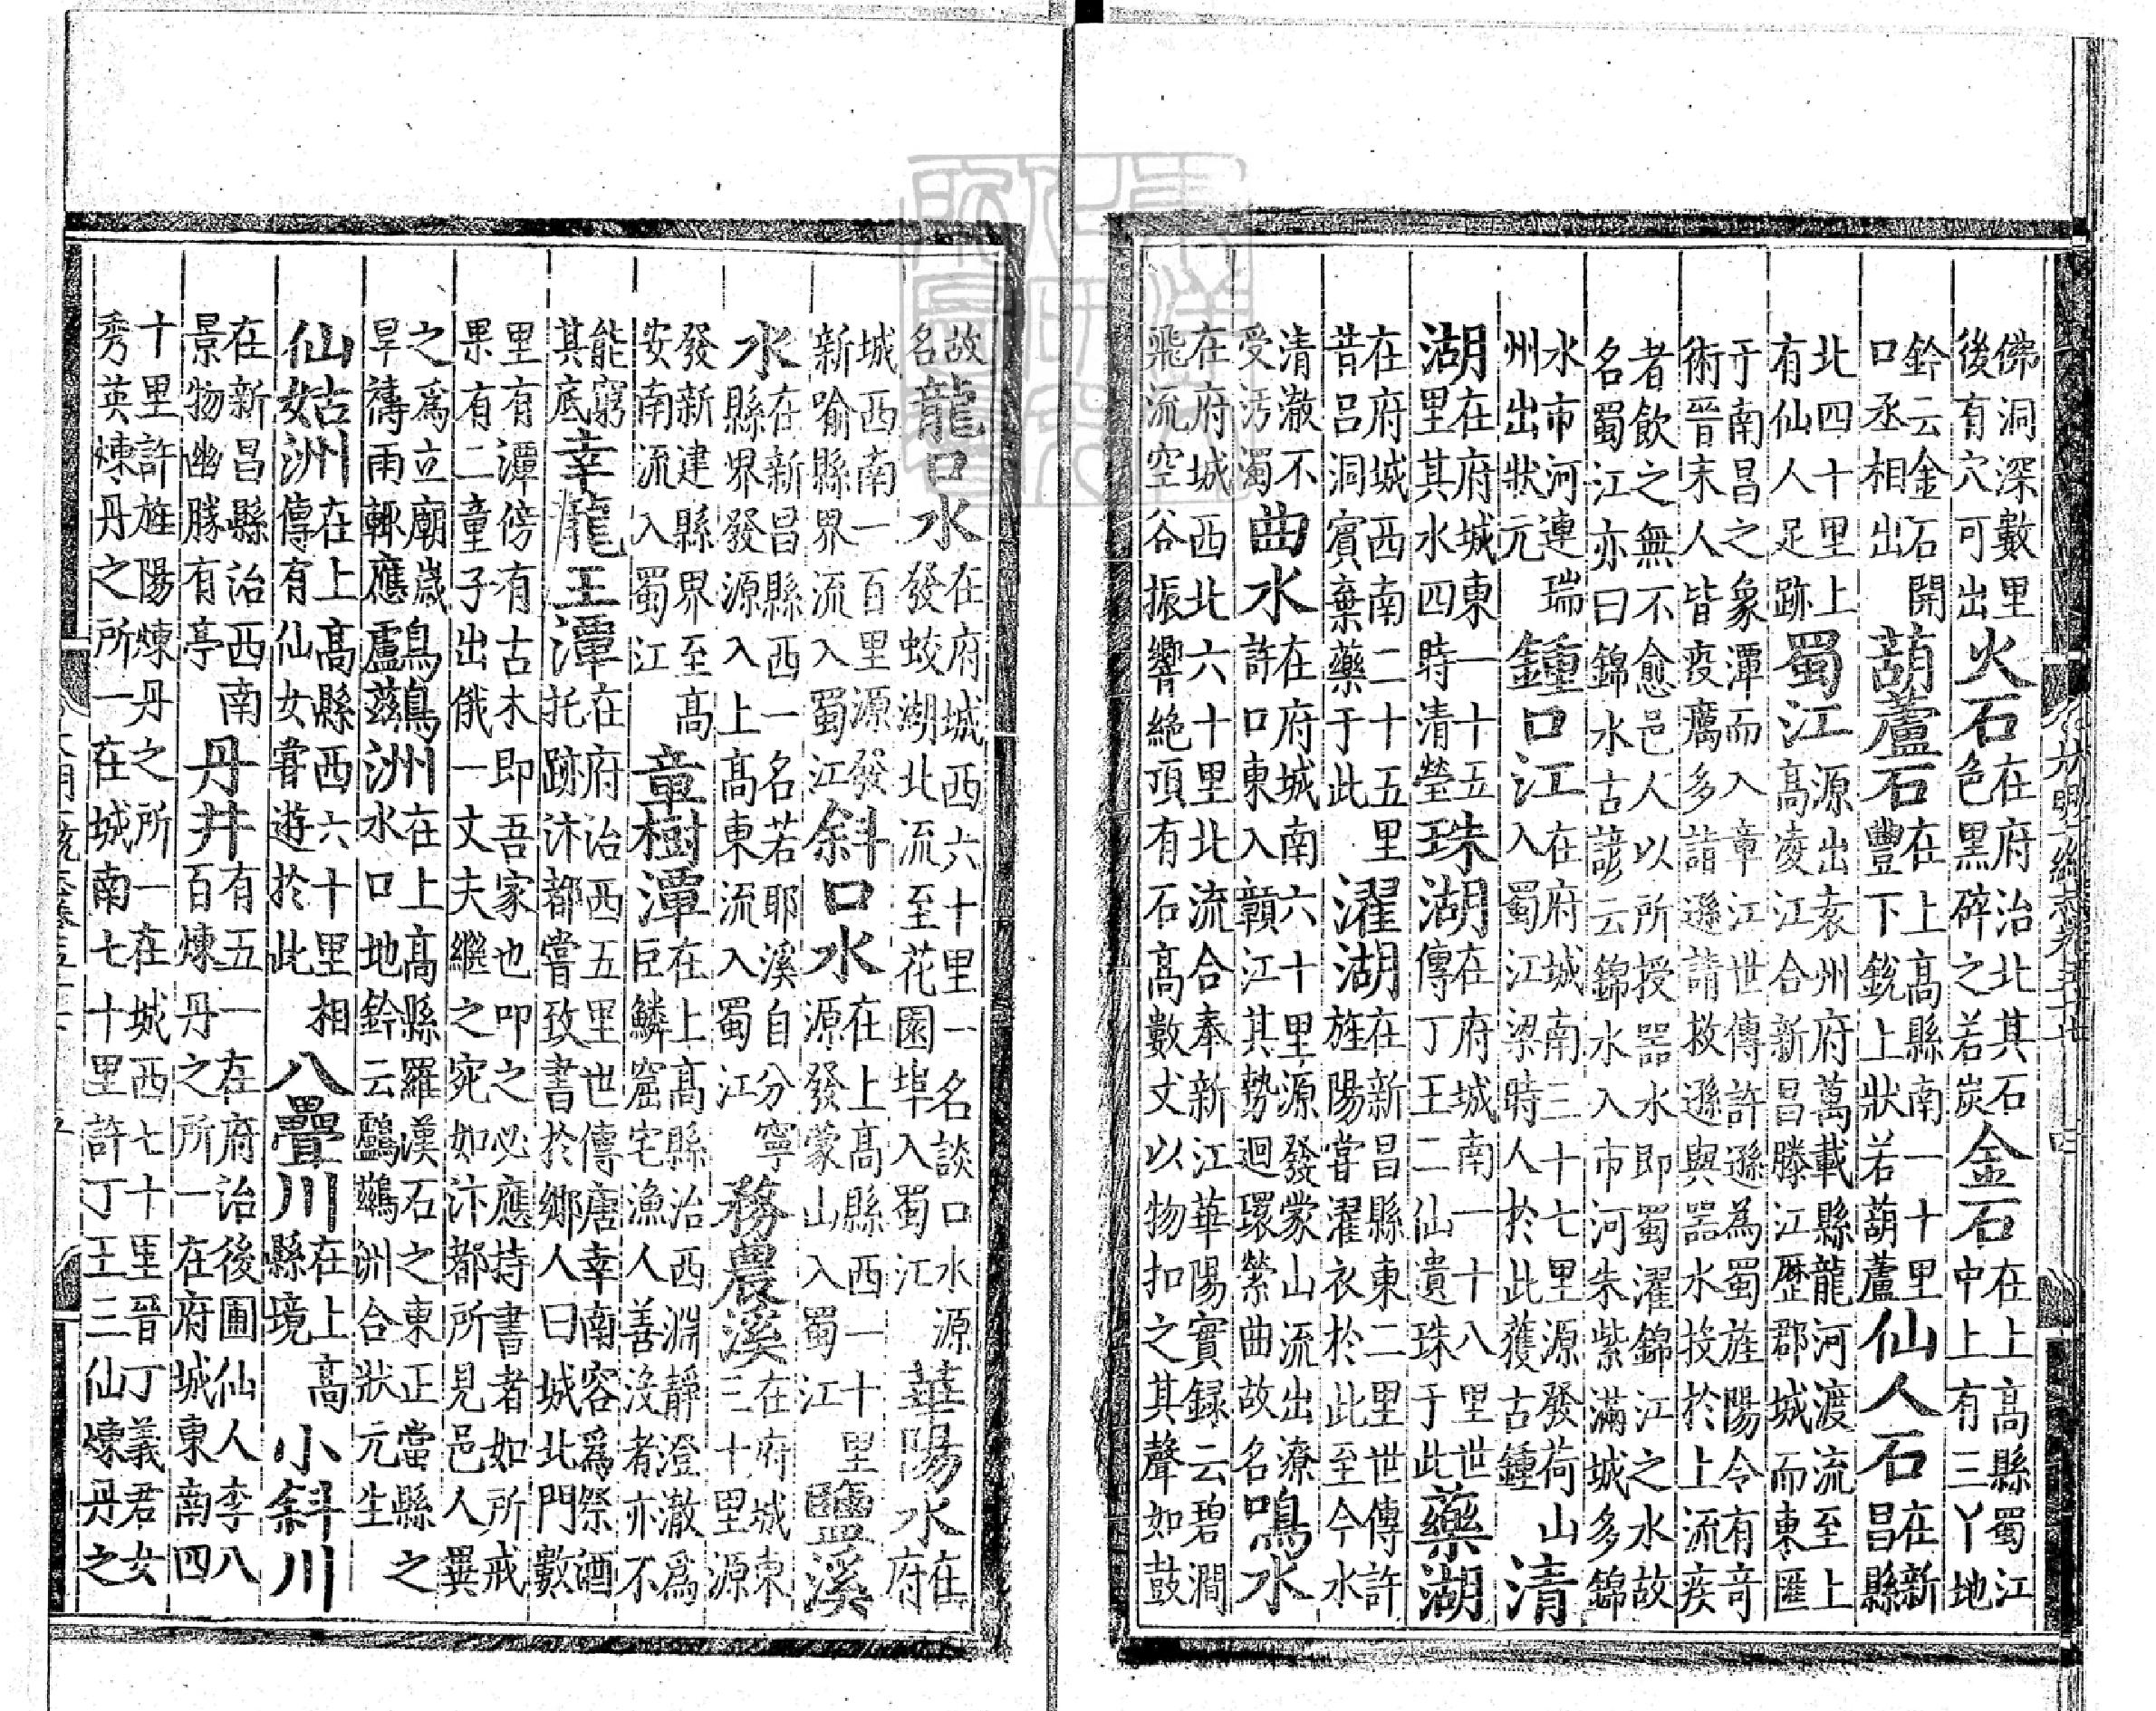 佛洞深數里後有穴可出火石在府治北其石色黑碎之若炭金石在上高縣蜀江中上有三丫地
鈐云金石開口丞相出葫蘆石在上高縣南一十里豐下銳上狀若葫蘆仙人石在新昌縣
北四十里上有仙人足跡蜀江源出袁州府萬載縣龍河渡流至上高凌江合新昌滕江歷郡城而東匯
于南昌之象潭而入章江世傳許遜為蜀旌陽令有奇術晉末人皆疫癘多詣遜請救遜與器水投於上流疾
者飲之無不愈邑人以所授器水即蜀濯錦江之水故名蜀江亦曰錦水古諺云錦水入市河朱紫滿城多錦
水市河連瑞州出狀元鍾口江在府城南三十七里源發荷山入蜀江梁時人於此獲古鍾清
湖在府城東一十五里其水四時清瑩珠湖在府城南一十八里世傳丁王二仙遺珠于此藥湖
在府城西南二十五里昔呂洞賓棄藥于此濯湖在新昌縣東二里世傳許旌陽嘗濯衣於此至今水
清澈不受污濁曲水在府城南六十里源發蒙山流出潦許口東入贑江其勢迴環縈曲故名鳴水
在府城西北六十里北流合奉新江華陽實録云碧澗飛流空谷振響絶頂有石高數丈以物扣之其聲如鼓
故名龍口水在府城西六十里一名談口水源發蛟湖北流至花園埠入蜀江華陽水在府
城西南一百里源發新喻縣界流入蜀江斜口水在上高縣西一十里源發蒙山入蜀江鹽溪
水在新昌縣西一名若耶溪自分寧縣界發源入上高東流入蜀江務農溪在府城東三十里源
發新建縣界至高安南流入蜀江章樹潭在上高縣治西淵靜澄澈爲巨鱗窟宅漁人善沒者亦不
能窮其底幸龍王潭在府治西五里世傳唐幸南容爲祭酒托跡汴都嘗致書於鄉人曰城北門數
里有潭傍有古木即吾家也叩之必應持書者如所戒果有二童子出俄一丈夫繼之宛如汴都所見邑人異
之爲立廟歲旱禱雨輒應鸕鶿洲在上高縣羅漢石之東正當縣之水口地鈐云鸕鶿洲合狀元生
仙姑洲在上高縣西六十里相傳有仙女嘗遊於此八疊川在上高縣境小斜川
在新昌縣治西南景物幽勝有亭丹井有五一在府治後圃仙人李八百煉丹之所一在府城東南四
十里許旌陽煉丹之所一在城西七十里晉丁義君女秀英煉丹之所一在城南七十里許丁王三仙煉丹之